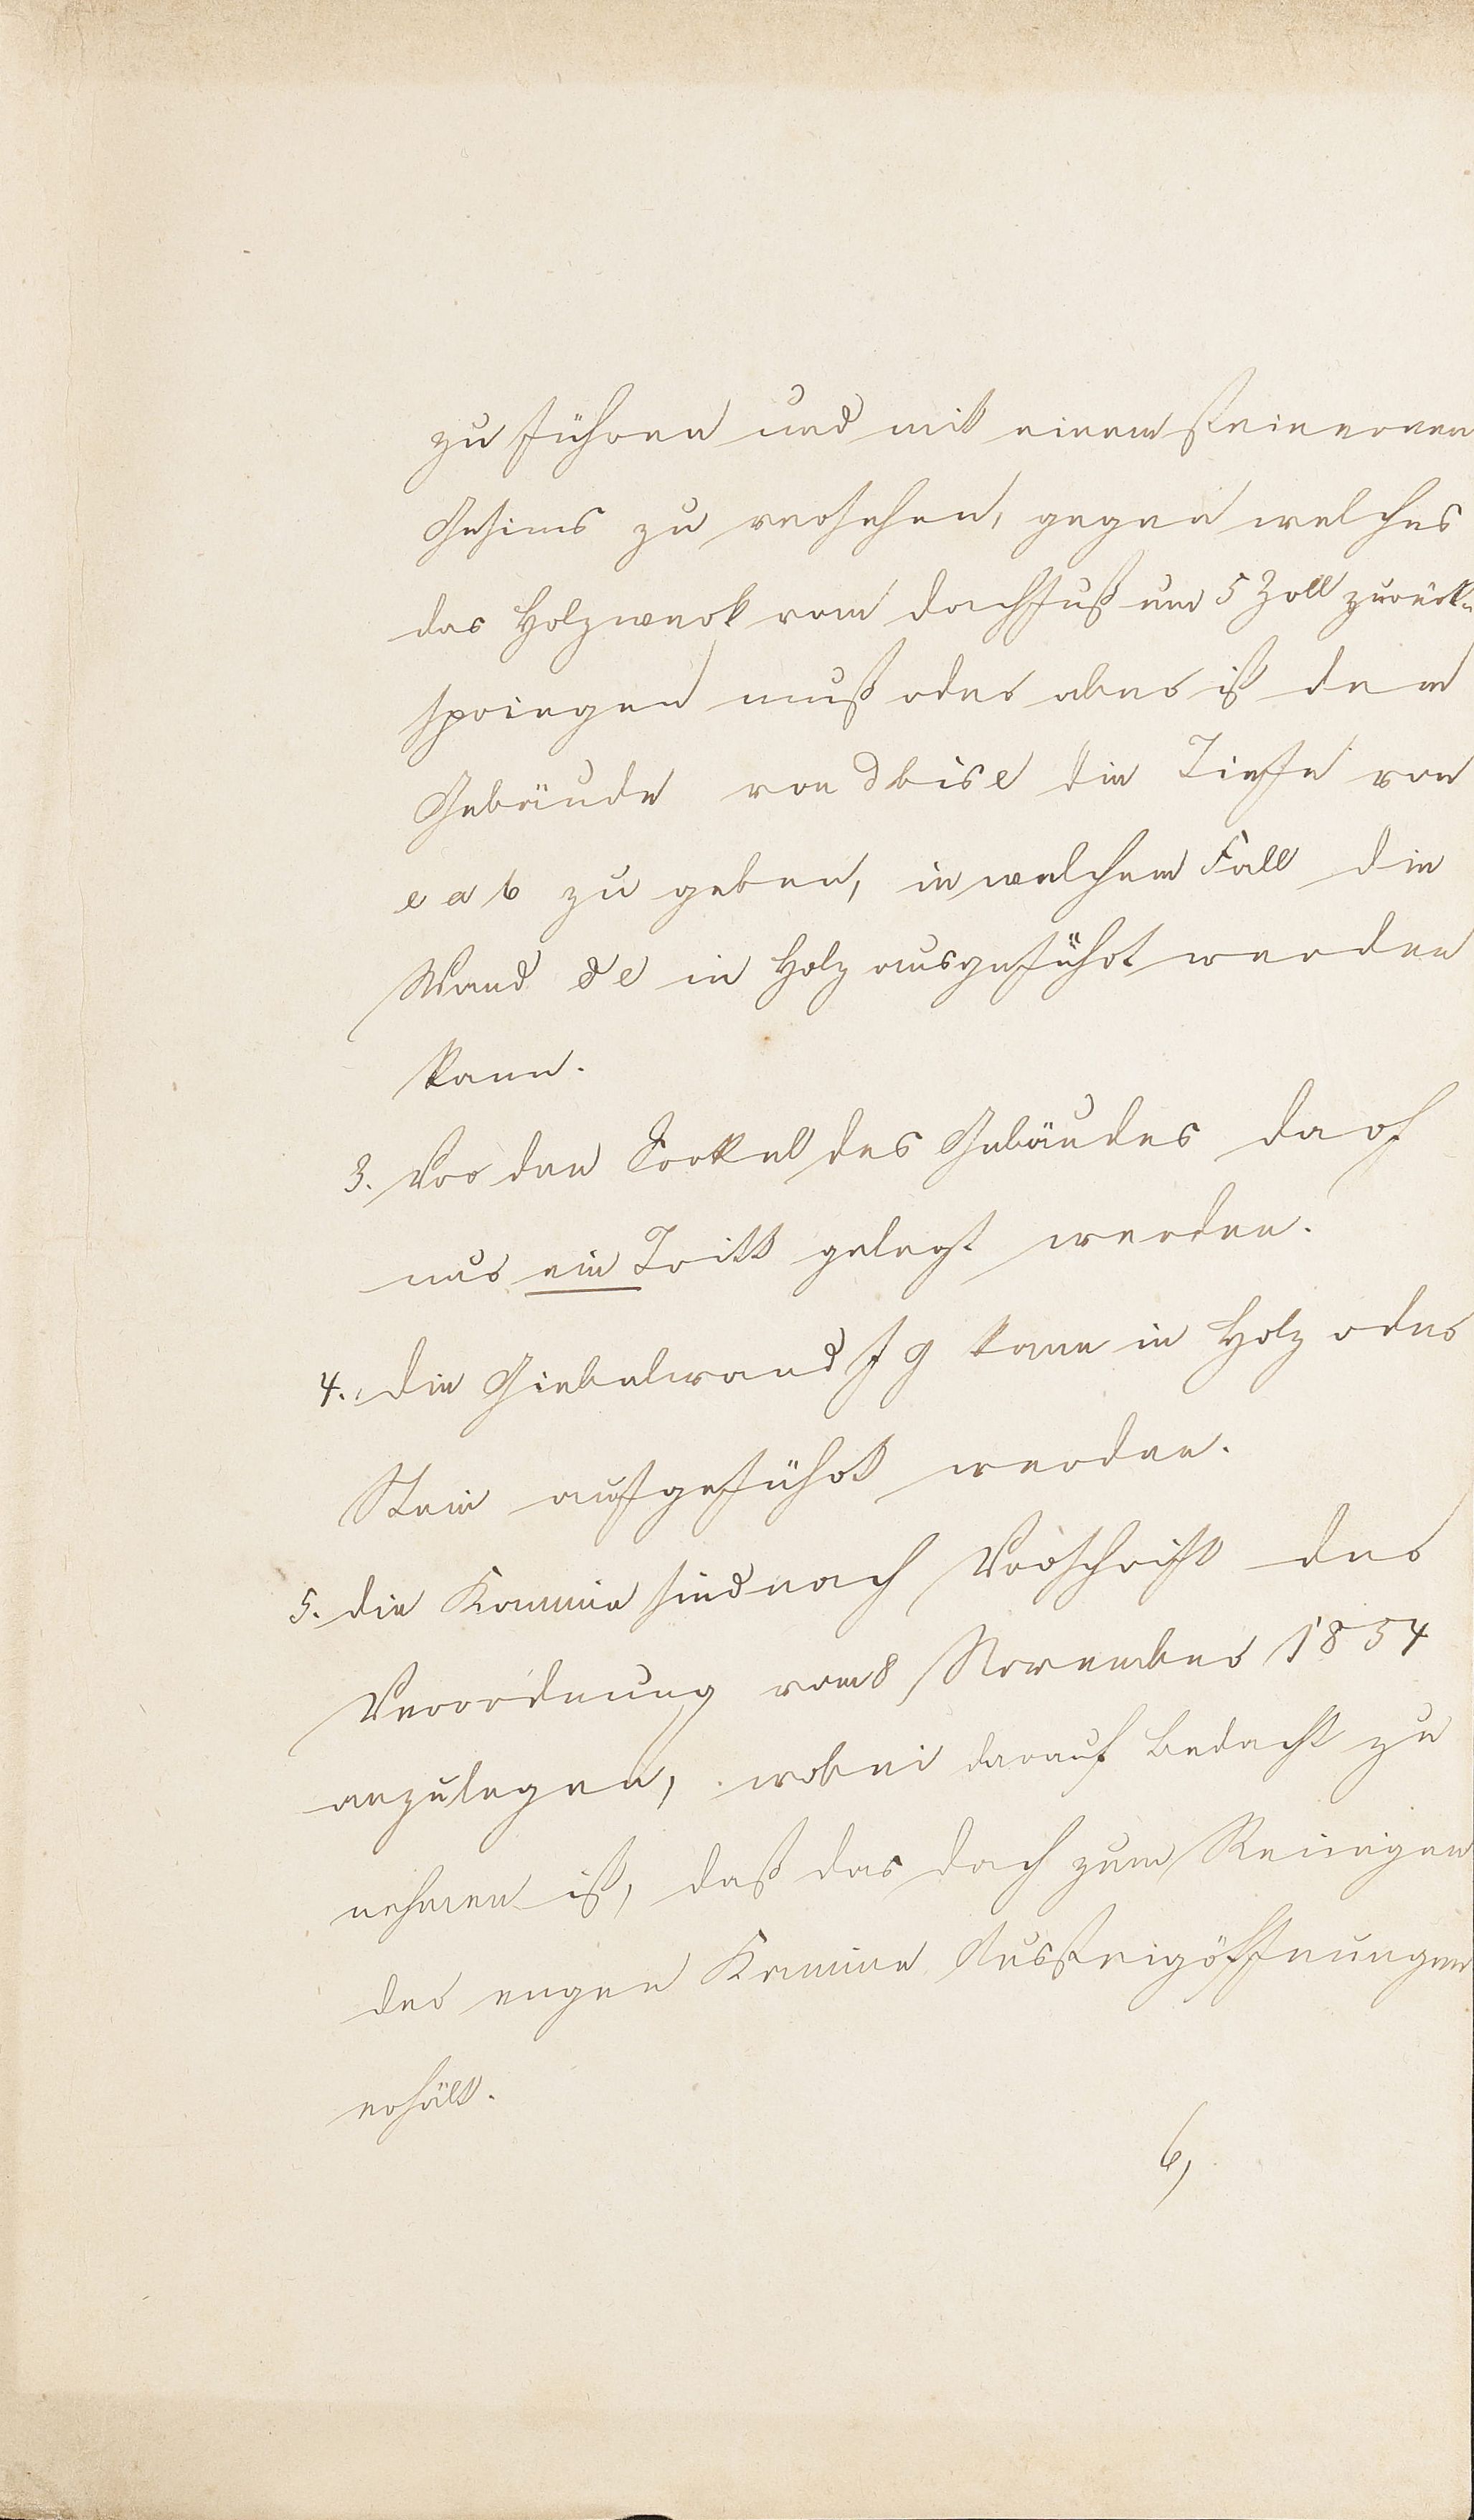 zu führen und mit einem steinernen
Gesims zu versehen, gegen welches
das Holzwerk vom Dachfuß um 5 Zoll zurück-
springen muß oder aber ist dem
Gebäude von d bis e die Tiefe von
e a b zu geben, in welchem Fall die
Wand d e in Holz ausgeführt werden
kann.
3. Vor den Sockel des Gebäudes darf
nur ein Tritt gelegt werden.
4. Die Giebelwand f g kann in Holz oder
Stein aufgeführt werden.
5. Die Kamine sind nach Vorschrift der
Verordnung vom 8 November 1834
anzulegen, wobei darauf Bedacht zu
nehmen ist, daß das Dach zum Reinigen
der engen Kamine Aussteigöffnungen
erhält.
6,